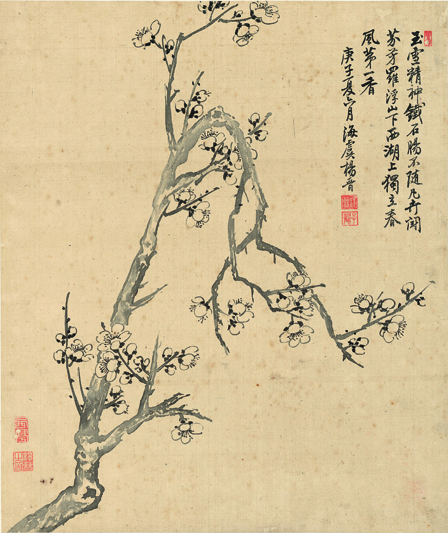 玉雪精神鐵石腸不隨凡卉鬥
芬芳羅浮山下西湖上獨立春
風第一香
庚子夏六月海虞楊晉